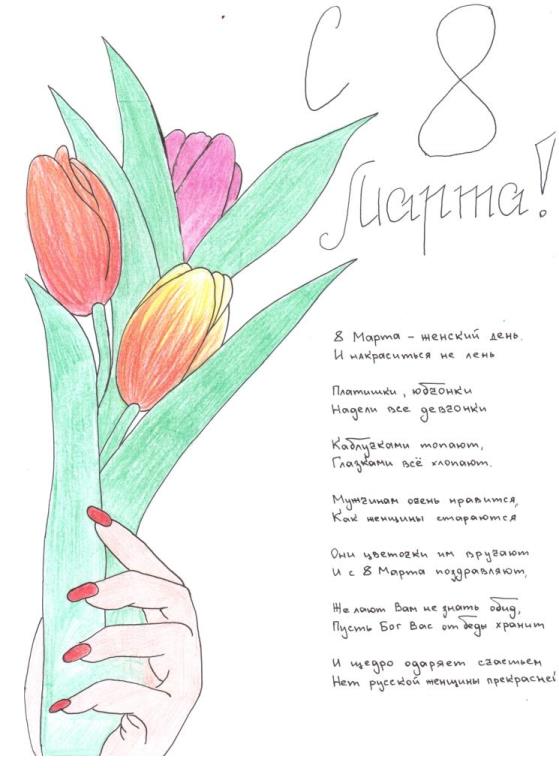 С 8
Марта!
8 Марта – женский день.
И накраситься не лень
Платишки, юбчонки
Надели все девчонки
Каблучками топают,
Глазками всё хлопают.
Мужчинам очень нравится,
Как женщины стараются
Они цветочки им вручают
И с 8 Марта поздравляют,
Желают Вам не знать обид,
Пусть Бог Вас от беды хранит
И щедро одаряет счастьем
Нет русской женщины прекрасней!